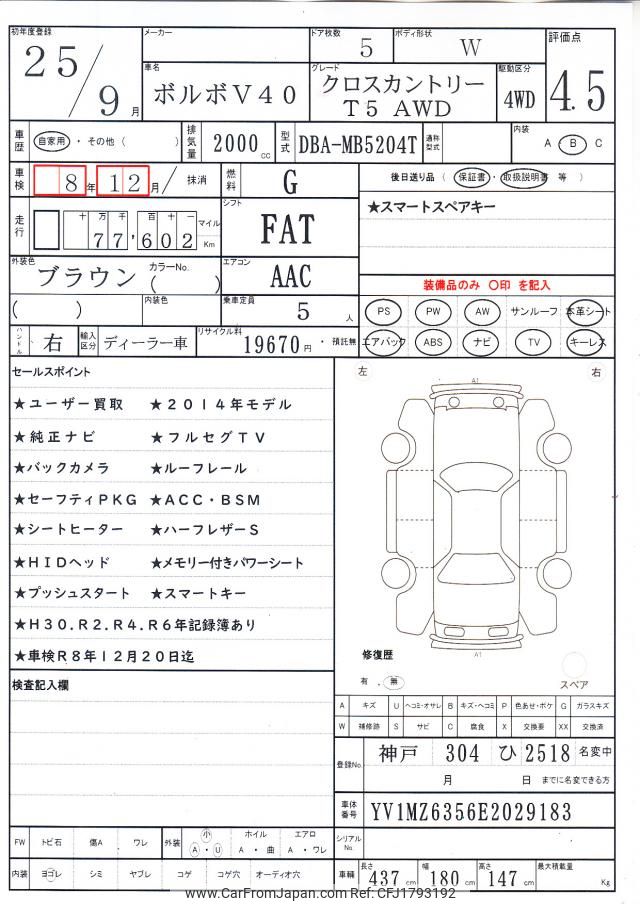 初年度登録 25/9月
メーカー
ドア枚数 5
ボディ形状 W
評価点 4.5
車名 ボルボV40
グレード クロスカントリー
T5 AWD
駆動区分 4WD
車歴 自家用・その他( )
排気量 2000cc
型式 DBA-MB5204T
通称型式
内装 A B C
車検 8年12月/ 抹消
燃料 G
後日送り品(保証書・取扱説明書 等)
走行 十万千百十一
77,602 マイル Km
シフト FAT
★スマートスペアキー
外装色 ブラウン
カラーNo.( )
エアコン AAC
装備品のみ 〇印 を記入
( )
内装色
乗車定員 5人
PS PW AW サンルーフ 本革シート
ハンドル 右
輸入区分 ディーラー車
リサイクル料 19670円・預託無
エアバック ABS ナビ TV キーレス
セールスポイント
左 右
★ユーザー買取 ★2014年モデル
A1
★純正ナビ ★フルセグTV
★バックカメラ ★ルーフレール
★セーフティPKG ★ACC・BSM
★シートヒーター ★ハーフレザーS
★HIDヘッド ★メモリー付きパワーシート
★プッシュスタート ★スマートキー
★H30.R2.R4.R6年記録簿あり
★車検R8年12月20日迄
A1
修復歴
有.無
スペア
検査記入欄
A キズ U ヘコミ・オサレ B キズ・ヘコミ P 色あせ・ボケ G ガラスキズ
W 補修跡 S サビ C 腐食 X 交換要 XX 交換済
登録No. 神戸 304 ひ 2518 名変中
月 日 までに名変できる方
車体番号 YV1MZ6356E2029183
FW トビ石 傷A ワレ 外装 小 A・U ホイル A・曲 エアロ A・ワレ
シリアルNo.
内装 ヨゴレ シミ ヤブレ コゲ コゲ穴 オーディオ穴
車輛 長さ 437cm 幅 180cm 高さ 147cm 最大積載量 Kg
www.CarFromJapan.com Ref:CFJ1793192